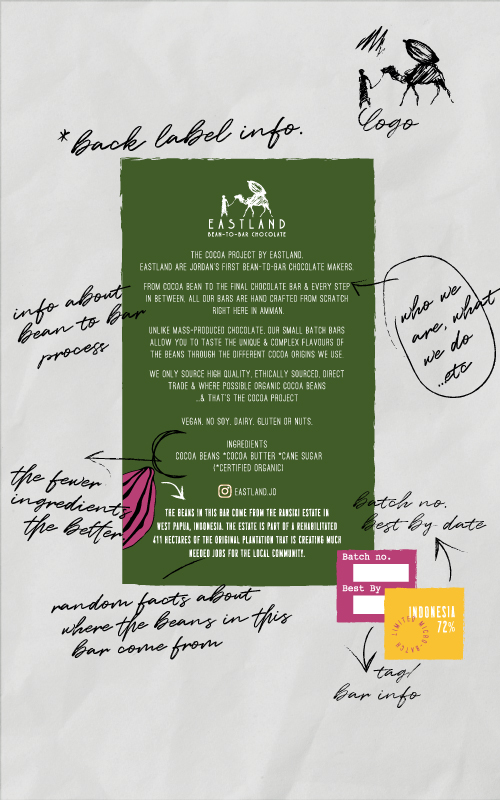 logo
*Back label info.
EASTLAND
BEAN-TO-BAR CHOCOLATE
THE COCOA PROJECT BY EASTLAND.
EASTLAND ARE JORDAN'S FIRST BEAN-TO-BAR CHOCOLATE MAKERS.
FROM COCOA BEAN TO THE FINAL CHOCOLATE BAR & EVERY STEP
IN BETWEEN, ALL OUR BARS ARE HAND CRAFTED FROM SCRATCH
RIGHT HERE IN AMMAN.
UNLIKE MASS-PRODUCED CHOCOLATE, OUR SMALL BATCH BARS
ALLOW YOU TO TASTE THE UNIQUE & COMPLEX FLAVOURS OF
THE BEANS THROUGH THE DIFFERENT COCOA ORIGINS WE USE.
WE ONLY SOURCE HIGH QUALITY, ETHICALLY SOURCED, DIRECT
TRADE & WHERE POSSIBLE ORGANIC COCOA BEANS
..& THAT'S THE COCOA PROJECT
VEGAN. NO SOY, DAIRY, GLUTEN OR NUTS.
INGREDIENTS
COCOA BEANS *COCOA BUTTER *CANE SUGAR
(*CERTIFIED ORGANIC)
EASTLAND.JO
THE BEANS IN THIS BAR COME FROM THE RANSIKI ESTATE IN
WEST PAPUA, INDONESIA. THE ESTATE IS PART OF A REHABILITATED
411 HECTARES OF THE ORIGINAL PLANTATION THAT IS CREATING MUCH
NEEDED JOBS FOR THE LOCAL COMMUNITY.
info about
bean to bar
process
who we
are, what
we do
..etc
the fewer
ingredients
the better
Batch no.
best by date
Batch no.
Best By
INDONESIA
72%
LIMITED MICRO BATCH
random facts about
where the beans in this
bar come from
tag/
bar info